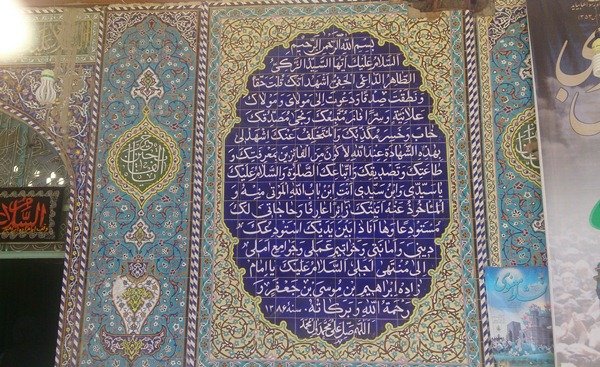 بسم الله الرحمن الرحیم
السلام علیک ایها السید الزکی
الطاهر الداعی الحفی اشهد انک قلت حقا
و نطقت صدقا و دعوت الی مولای و مولاک
علانیة و سرا فاز متبعک و نجی مصدقک
خاب و خسر مکذبک و المتخلف عنک اشهد لی
بهذه الشهادة عند الله لاکون من الفائزین بمعرفتک و
طاعتک و تصدیقک و اتباعک الصلوة و السلام علیک
یا سیدی وابن سیدی انت باب الله المؤتی منه و
الماخوذ عنه اتیتک زائرا عارفا و حاجاتی لک
مستودعا وها انا ذا بین یدیک استودعک
دینی و امانتی و خواتیم عملی و جوامع املی
الی منتهی اجلی السلام علیک یا امام
زاده ابراهیم بن موسی بن جعفر و
رحمة الله و برکاتة سنه ۱۳۸۶
السلام